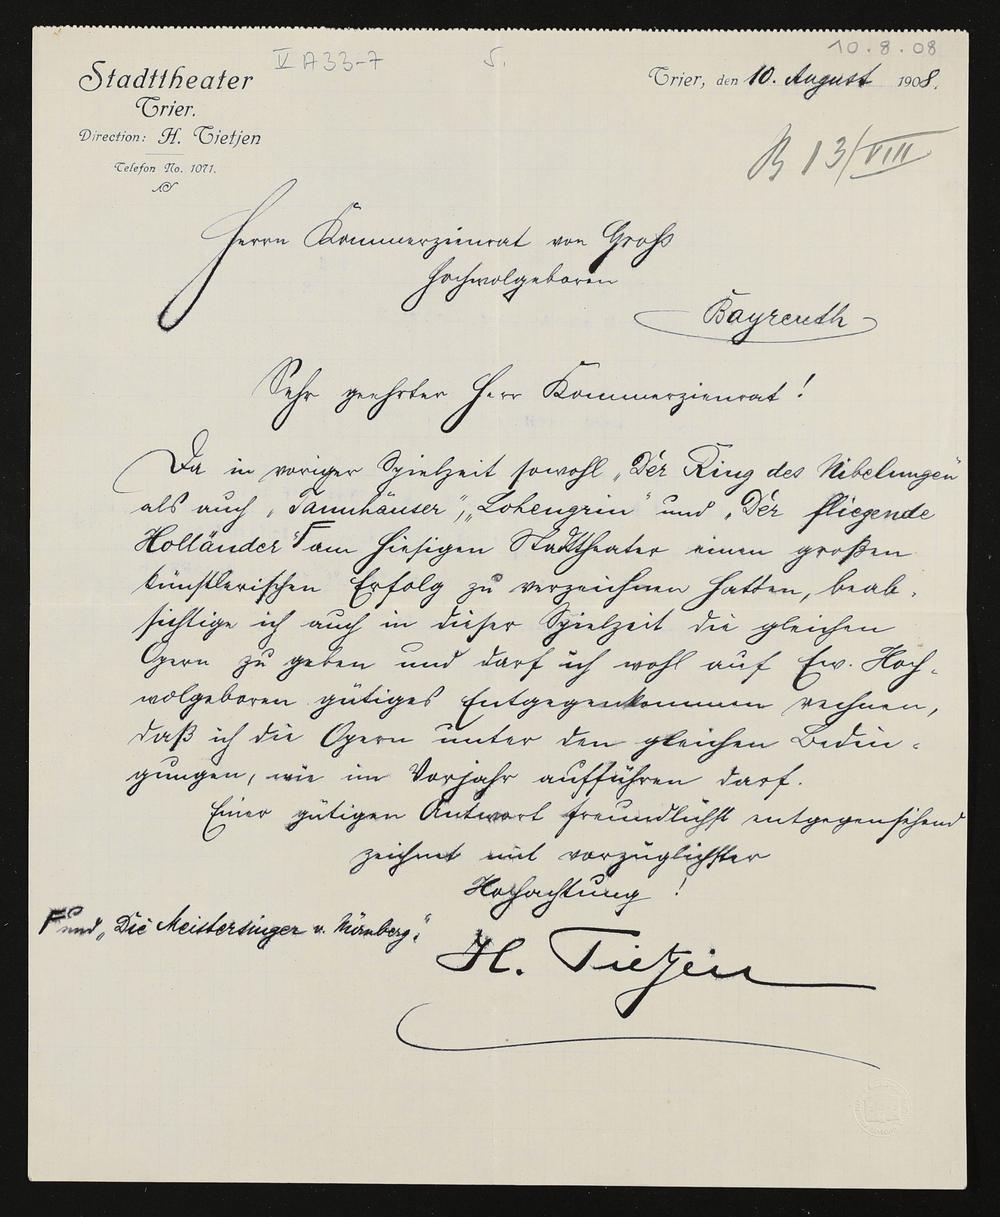 V A 33-7
5.
10.8.08
Stadttheater
Trier.
Direction: H. Tietjen
Telefon No. 1071.
Trier, den 10. August 1908.
B 13/VIII
Herrn Kommerzienrat von Groß
Hochwolgeboren
Bayreuth
Sehr geehrter Herr Kommerzienrat!
Da in voriger Spielzeit sowohl „Der Ring des Nibelungen"
als auch „Tannhäuser", „Lohengrin" und „Der fliegende
Holländer" F am hiesigen Stadttheater einen großen
künstlerischen Erfolg zu verzeichnen hatten, beab-
sichtige ich auch in dieser Spielzeit die gleichen
Opern zu geben und darf ich wohl auf Ew. Hoch-
wolgeboren gütiges Entgegenkommen rechnen,
daß ich die Opern unter den gleichen Bedin-
gungen, wie im Vorjahr aufführen darf.
Einer gütigen Antwort freundlichst entgegensehend
zeichnet mit vorzüglichster
Hochachtung!
F und „Die Meistersinger v. Nürnberg"
H. Tietjen